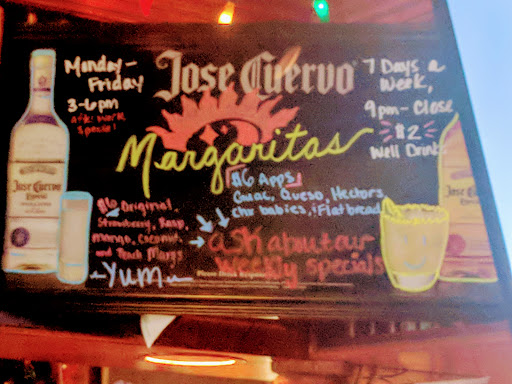 Monday -
Friday
3-6pm
aftr work
special!
Jose Cuervo
Margaritas
7 Days a
Week,
9pm - Close
$2
Well Drinks
$6 Apps
Guac, Queso, Hectors,
chx babies, Flatbread
$6 Original,
Strawberry, Rasp,
Mango, Coconut,
and Peach Margs
-YUM-
ask about our
weekly specials
Please Drink Responsibly
Jose Cuervo
Jose Cu